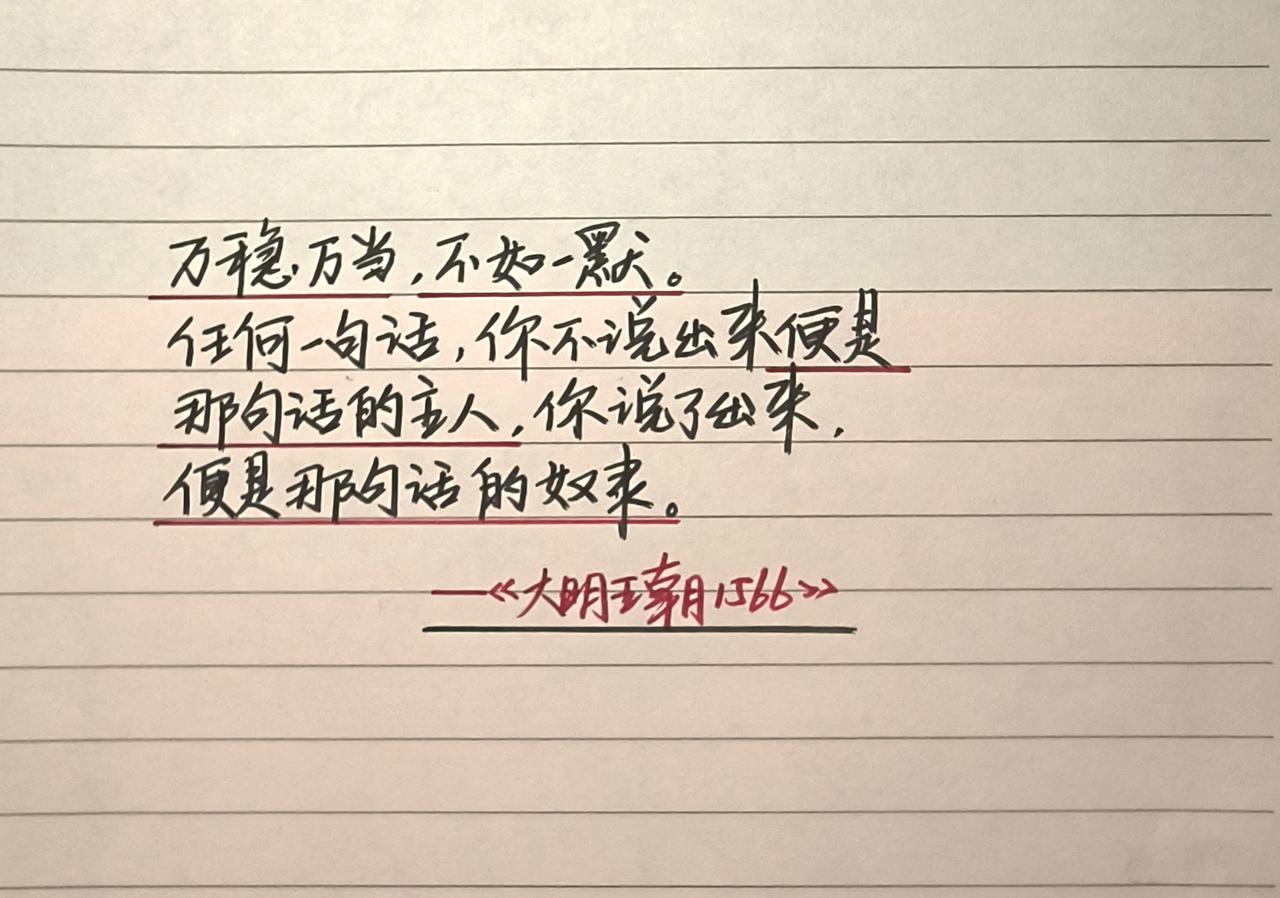 万稳万当，不如一默。
任何一句话，你不说出来便是
那句话的主人，你说了出来，
便是那句话的奴隶。
—《大明王朝1566》